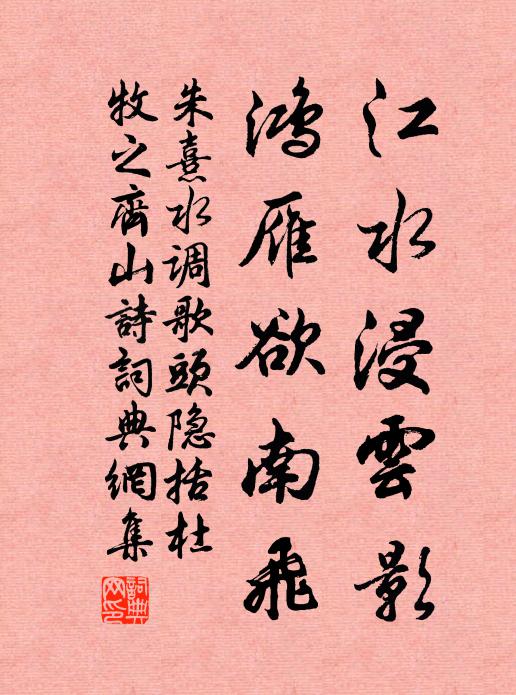 江水浸雲影
鴻雁欲南飛
朱熹水调歌頭隐括杜
牧之齊山詩詞典網集